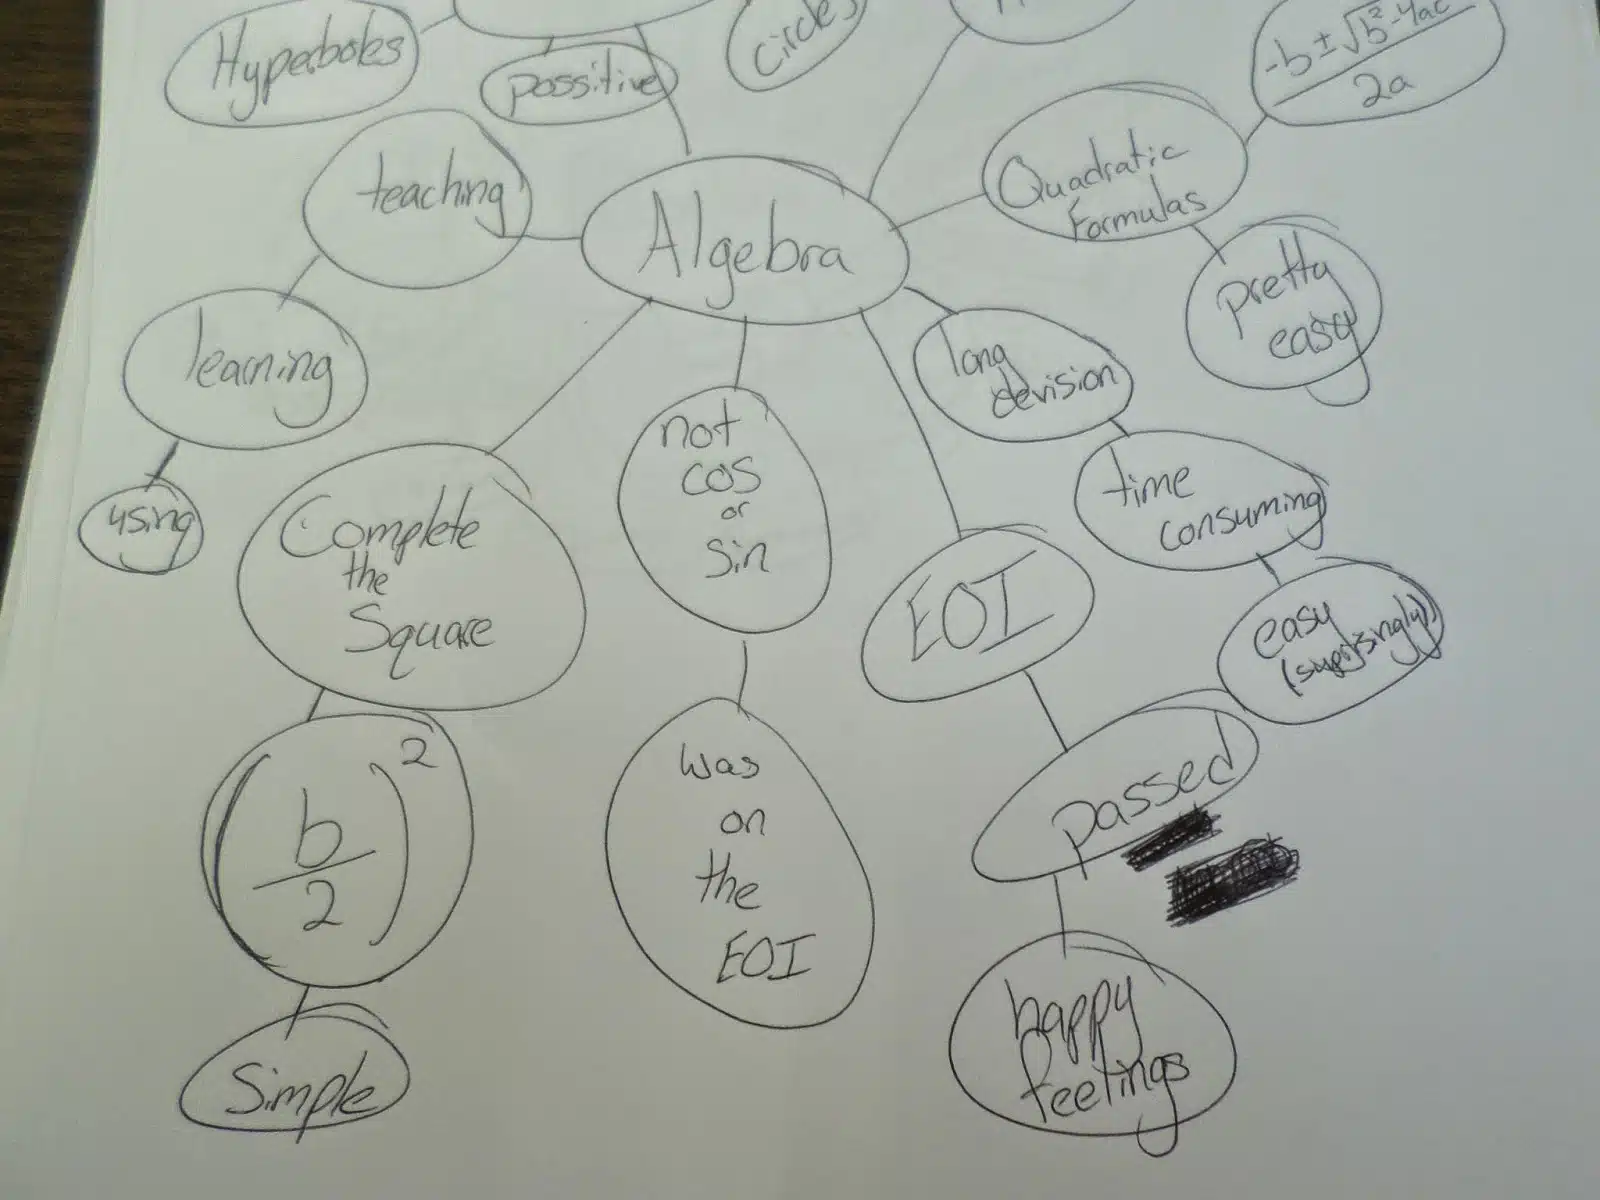 Hyperboles
possitive
Circles
-b ± √b²-4ac
2a
teaching
Algebra
Quadratic
Formulas
pretty
easy
learning
long
devision
using
not
cos
or
sin
time
consuming
Complete
the
Square
EOI
easy
(suprisingly)
(b/2)²
was
on
the
EOI
passed
happy
feelings
Simple